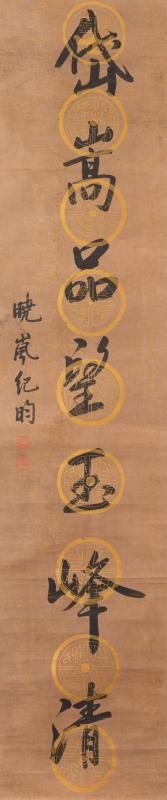 岱嵩品望玉峰清
晓岚纪昀